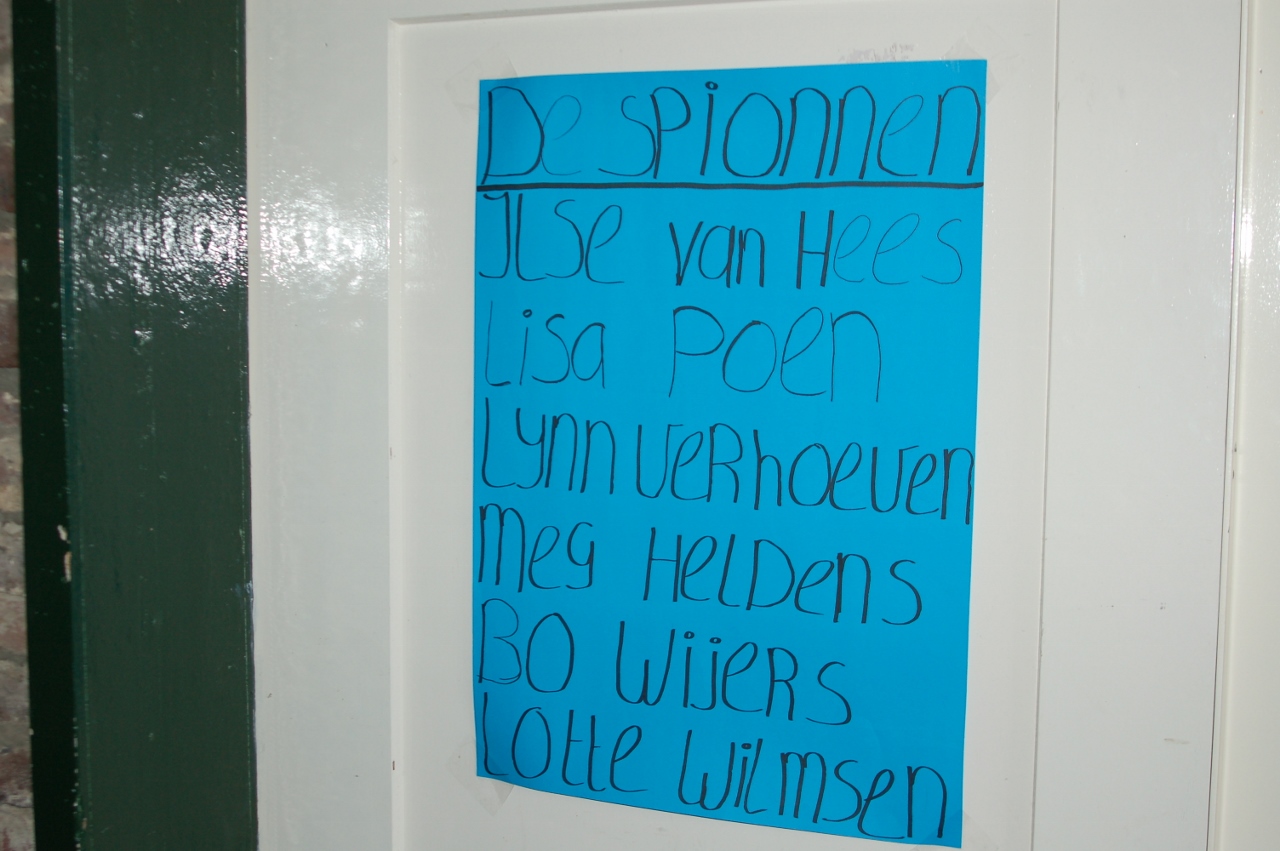 De spionnen
Ilse van Hees
Lisa Poen
Lynn Verhoeven
Meg Heldens
Bo Wijers
Lotte Wilmsen